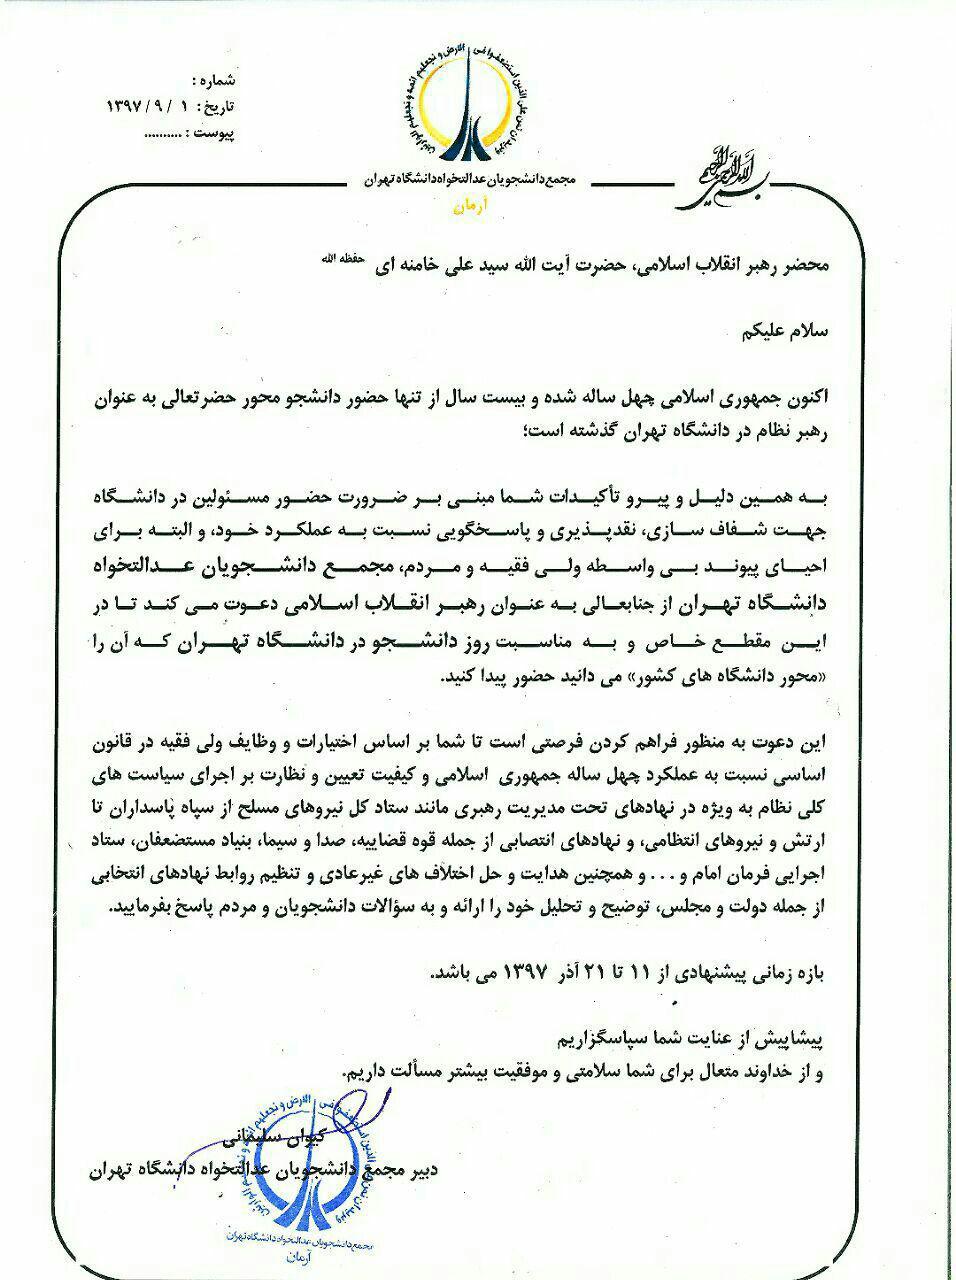 شماره :
تاریخ : ۱ / ۹ / ۱۳۹۷
پیوست : ..........
و نرید ان نمن علی الذین استضعفوا فی الارض و نجعلهم ائمه و نجعلهم الوارثین
مجمع دانشجویان عدالتخواه دانشگاه تهران
آرمان
بسم الله الرحمن الرحیم
محضر رهبر انقلاب اسلامی، حضرت آیت الله سید علی خامنه ای حفظه الله
سلام علیکم
اکنون جمهوری اسلامی چهل ساله شده و بیست سال از تنها حضور دانشجو محور حضرتعالی به عنوان
رهبر نظام در دانشگاه تهران گذشته است؛
به همین دلیل و پیرو تأکیدات شما مبنی بر ضرورت حضور مسئولین در دانشگاه
جهت شفاف سازی، نقدپذیری و پاسخگویی نسبت به عملکرد خود، و البته برای
احیای پیوند بی واسطه ولی فقیه و مردم، مجمع دانشجویان عدالتخواه
دانشگاه تهران از جنابعالی به عنوان رهبر انقلاب اسلامی دعوت می کند تا در
این مقطع خاص و به مناسبت روز دانشجو در دانشگاه تهران که آن را
«محور دانشگاه های کشور» می دانید حضور پیدا کنید.
این دعوت به منظور فراهم کردن فرصتی است تا شما بر اساس اختیارات و وظایف ولی فقیه در قانون
اساسی نسبت به عملکرد چهل ساله جمهوری اسلامی و کیفیت تعیین و نظارت بر اجرای سیاست های
کلی نظام به ویژه در نهادهای تحت مدیریت رهبری مانند ستاد کل نیروهای مسلح از سپاه پاسداران تا
ارتش و نیروهای انتظامی، و نهادهای انتصابی از جمله قوه قضاییه، صدا و سیما، بنیاد مستضعفان، ستاد
اجرایی فرمان امام و . . . و همچنین هدایت و حل اختلاف های غیرعادی و تنظیم روابط نهادهای انتخابی
از جمله دولت و مجلس، توضیح و تحلیل خود را ارائه و به سؤالات دانشجویان و مردم پاسخ بفرمایید.
بازه زمانی پیشنهادی از ۱۱ تا ۲۱ آذر ۱۳۹۷ می باشد.
پیشاپیش از عنایت شما سپاسگزاریم
و از خداوند متعال برای شما سلامتی و موفقیت بیشتر مسألت داریم.
کیوان سلیمانی
دبیر مجمع دانشجویان عدالتخواه دانشگاه تهران
و نرید ان نمن علی الذین استضعفوا فی الارض و نجعلهم ائمه و نجعلهم الوارثین
مجمع دانشجویان عدالتخواه دانشگاه تهران
آرمان